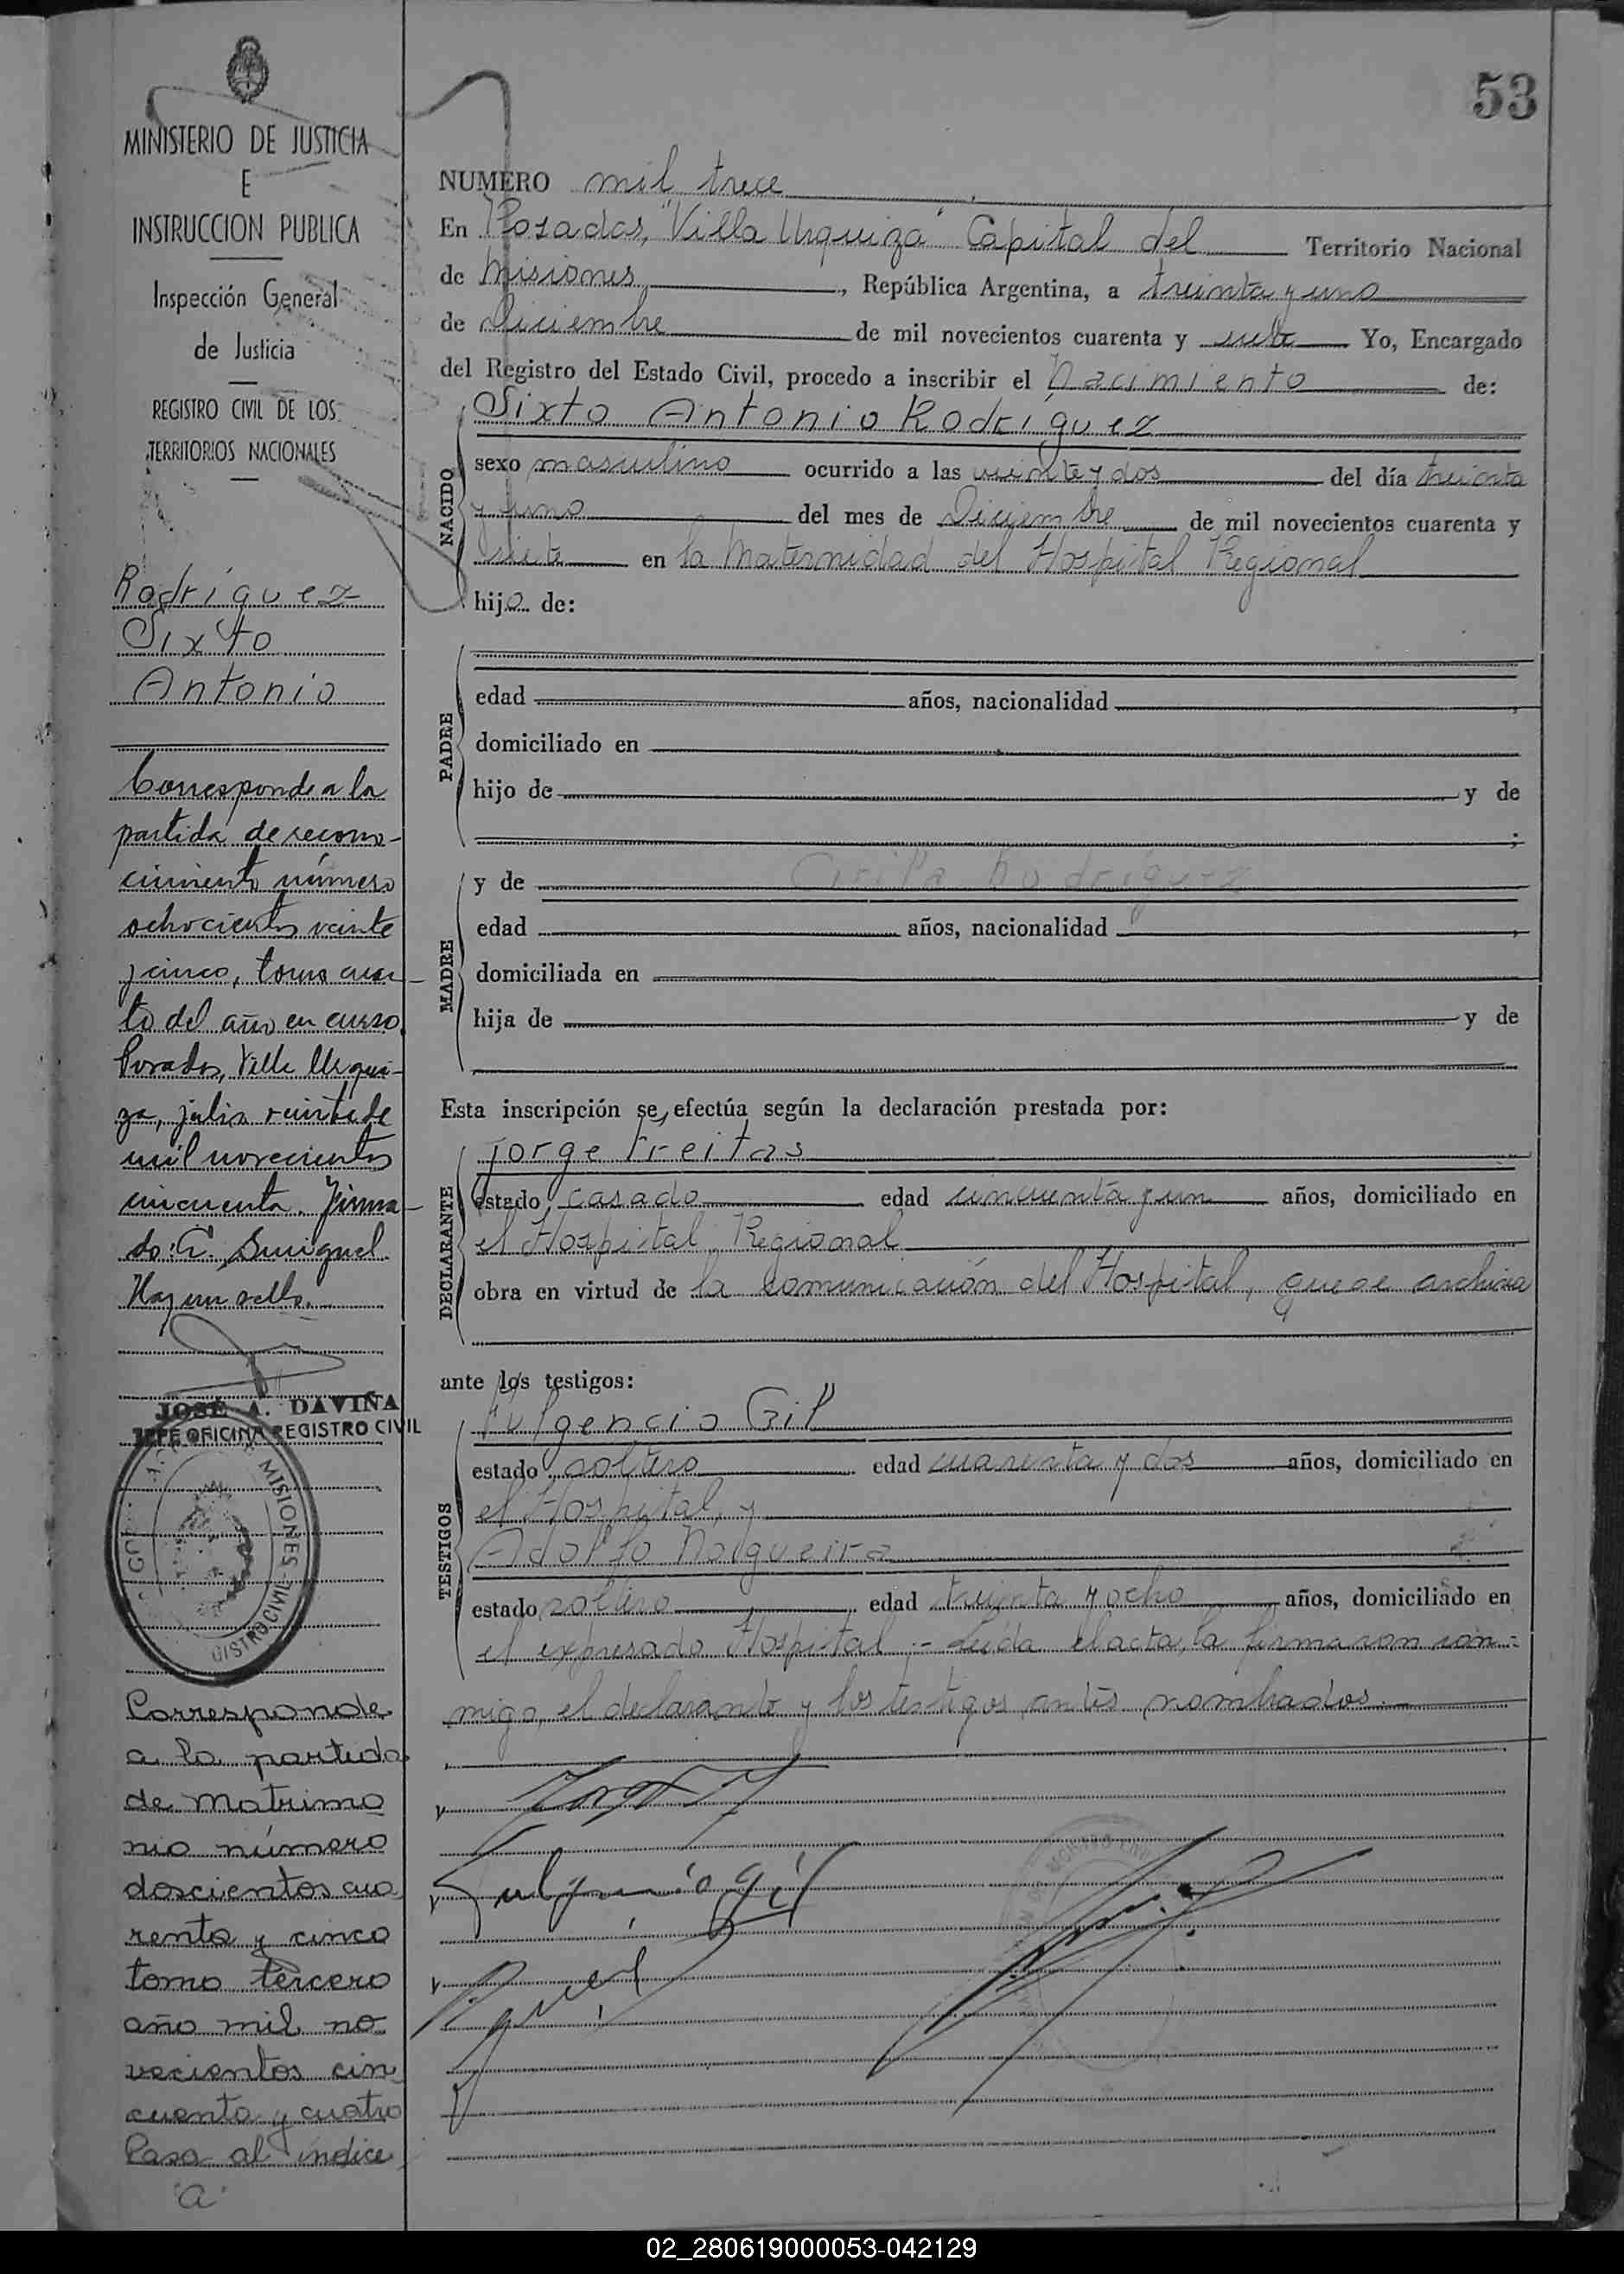 53
MINISTERIO DE JUSTICIA
E
INSTRUCCION PUBLICA
Inspección General
de Justicia
REGISTRO CIVIL DE LOS
TERRITORIOS NACIONALES
Rodríguez
Sixto
Antonio
Corresponde a la
partida de recono-
cimiento número
ochocientos veinte
y cinco, tomo cuar-
to del año en curso
Posadas, Villa Urqui-
za, julio veinte de
mil novecientos
cincuenta. Firma-
do: C.
Hay un sello.
JOSÉ A. DAVIÑA
JEFE OFICINA REGISTRO CIVIL
MISIONES
Corresponde
a la partida
de Matrimo
nio número
doscientos cua
renta y cinco
tomo tercero
año mil no
vecientos cin
cuenta y cuatro
Pasa al índice
"a"
NUMERO mil trece
En Posadas, "Villa Urquiza" Capital del Territorio Nacional
de Misiones, República Argentina, a treinta y uno
de Diciembre de mil novecientos cuarenta y siete Yo, Encargado
del Registro del Estado Civil, procedo a inscribir el Nacimiento de:
NACIDO
Sixto Antonio Rodríguez
sexo masculino ocurrido a las veinte y dos del día treinta
y uno del mes de Diciembre de mil novecientos cuarenta y
siete en la Maternidad del Hospital Regional
hijo de:
PADRE
edad años, nacionalidad ,
domiciliado en
hijo de y de
;
MADRE
y de Cirila Rodríguez
edad años, nacionalidad ,
domiciliada en
hija de y de
Esta inscripción se efectúa según la declaración prestada por:
DECLARANTE
Jorge Freitas
estado casado edad cincuenta y un años, domiciliado en
el Hospital Regional
obra en virtud de la comunicación del Hospital, que se archiva
ante los testigos:
TESTIGOS
Fulgencio Gil
estado soltero edad cuarenta y dos años, domiciliado en
el Hospital, y
Adolfo Nolgueira
estado soltero edad treinta y ocho años, domiciliado en
el expresado Hospital.- Leída el acta, la firmaron con-
migo, el declarante y los testigos antes nombrados.
Fulgencio gil
02_280619000053-042129